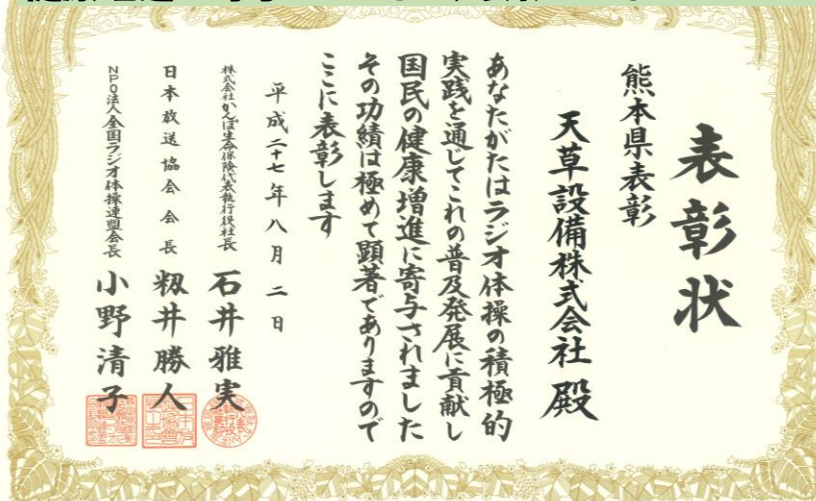 表彰状
熊本県表彰
天草設備株式会社 殿
あなたがたはラジオ体操の積極的
実践を通じてこれの普及発展に貢献し
国民の健康増進に寄与されました
その功績は極めて顕著でありますので
ここに表彰します
平成二十七年八月二日
株式会社かんぽ生命保険代表執行役社長 石井雅実
日本放送協会会長 籾井勝人
NPO法人全国ラジオ体操連盟会長 小野清子